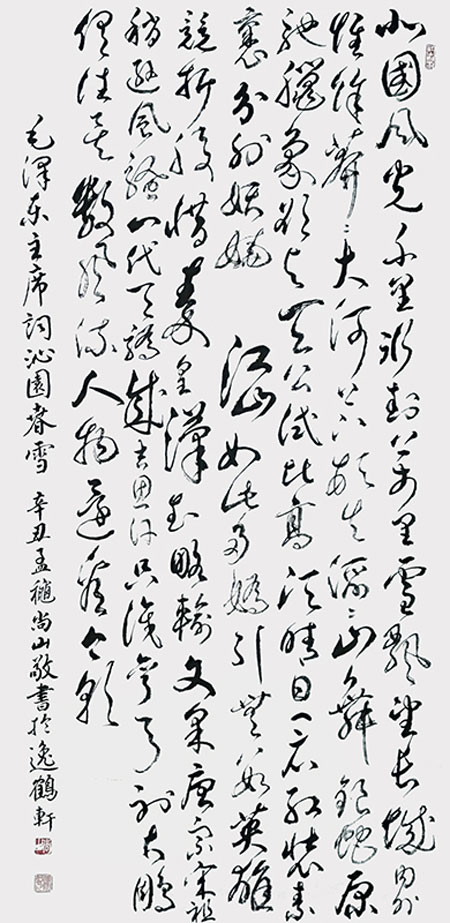 北國風光千里冰封萬里雪飄望長城內外
惟餘莽々大河上下頓失滔々山舞銀蛇原
馳臘象欲與天公試比高須晴日看紅裝素
裹分外妖嬈 江山如此多嬌引無數英雄
競折腰惜秦皇漢武略輸文采唐宗宋祖
稍遜風騷一代天驕成吉思汗只識彎弓射大鵰
俱往矣數風流人物還看今朝
毛澤东主席詞沁園春雪 辛丑孟穐尚山敬書於逸鶴軒